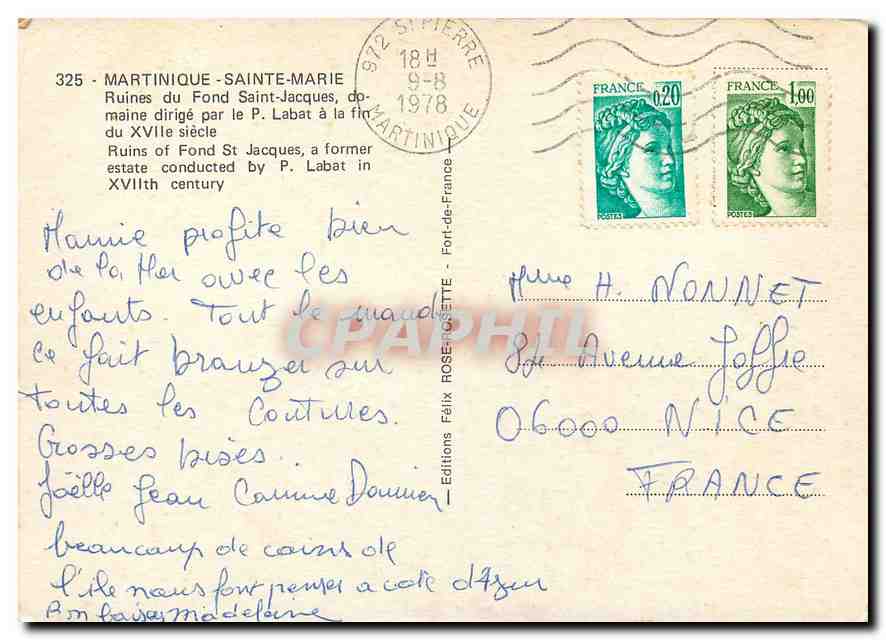 325 - MARTINIQUE - SAINTE-MARIE
Ruines du Fond Saint-Jacques, do-
maine dirigé par le P. Labat à la fin
du XVIIe siècle
Ruins of Fond St Jacques, a former
estate conducted by P. Labat in
XVIIth century
972 ST PIERRE
18H
9-8
1978
MARTINIQUE
FRANCE
0,20
POSTES
FRANCE
1,00
POSTES
Mamie profite bien
de la Mer avec les
enfants. Tout le monde
ce fait bronzer sur
toutes les coutures.
Grosses bises.
Joëlle Jean Damien
beaucoup de coins de
l'ile nous font penser a cote d'Azur
Bon baisers Madeleine
Editions Félix ROSE-ROSETTE - Fort-de-France
Mme H. NONNET
Avenue Joffre
06000 NICE
FRANCE
CPAPHIL